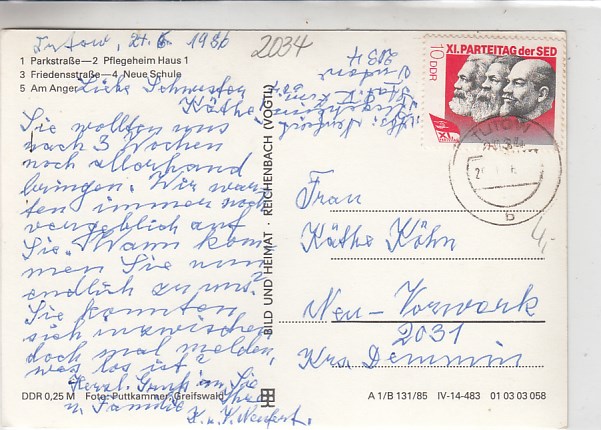 Tutow, 21.6.1986
2034
1 Parkstraße—2 Pflegeheim Haus 1
3 Friedensstraße—4 Neue Schule
5 Am Anger
Liebe Schwester
Käthe!
Sie wollten uns
nach 3 Wochen
noch allerhand
bringen. Wir war-
ten immer noch
vergeblich auf
Sie. Wann kom-
men Sie nun
endlich zu uns?
Sie könnten
sich inzwischen
doch mal melden,
was los ist?
Herzl. Grüße an Sie
u. Familie Ihre
DDR 0,25 M Foto: Puttkammer, Greifswald
BILD UND HEIMAT · REICHENBACH (VOGTL)
XI. PARTEITAG der SED
10 DDR
XI
TUTOW
b
Frau
Käthe Köhn
Neu-Vorwerk
2031
Krs. Demmin
A 1/B 131/85 IV-14-483 01 03 03 058